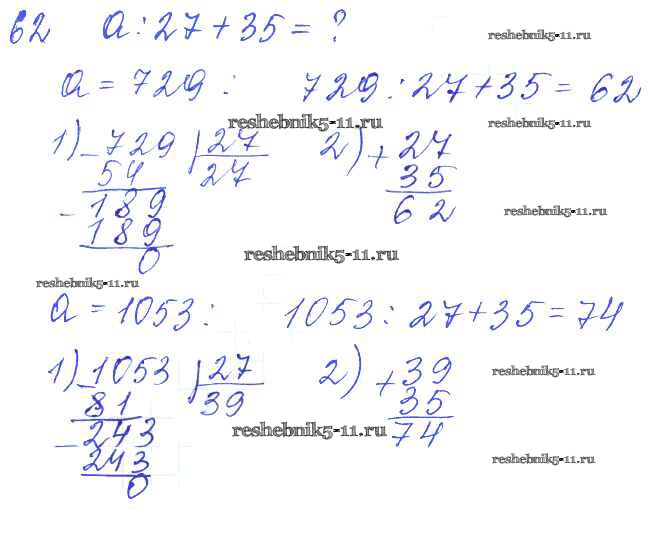 62 a : 27 + 35 = ? reshebnik5-11.ru
a = 729 : 729 : 27 + 35 = 62
reshebnik5-11.ru reshebnik5-11.ru
1) - 729 | 27 2) + 27
54 27 35
- 189 62 reshebnik5-11.ru
189
0 reshebnik5-11.ru
reshebnik5-11.ru
a = 1053 : 1053 : 27 + 35 = 74
1) - 1053 | 27 2) + 39 reshebnik5-11.ru
81 39 35
- 243 74 reshebnik5-11.ru
243 reshebnik5-11.ru
0